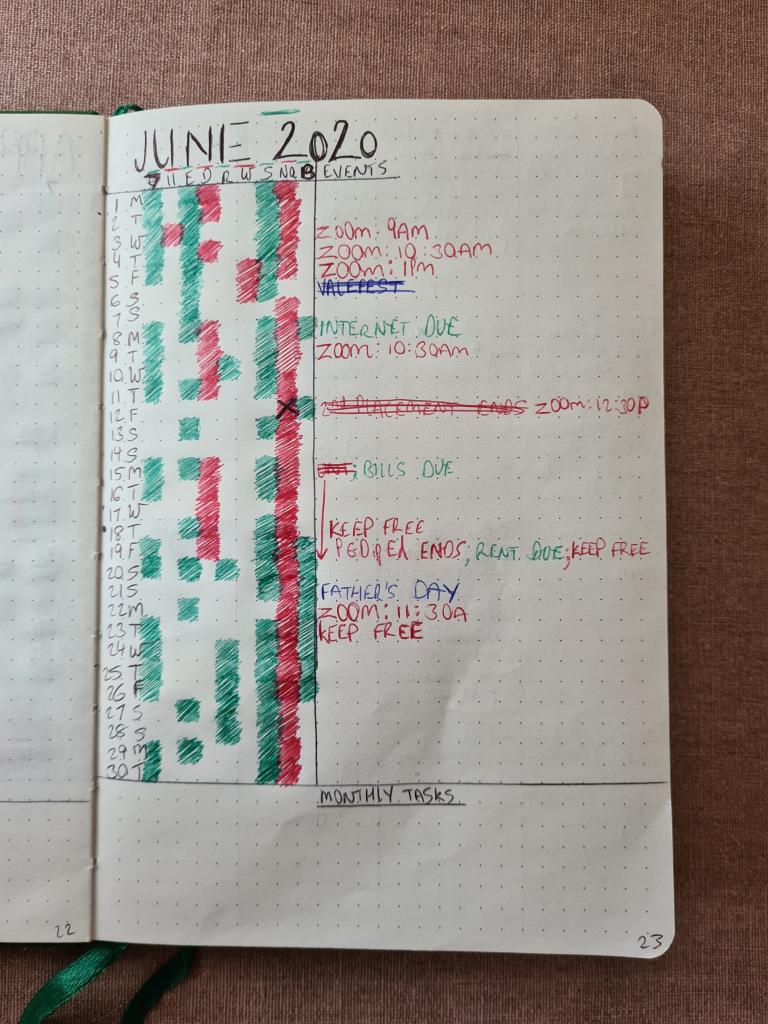 JUNE 2020
EVENTS
1 M
2 T
3 W ZOOM: 9AM
4 T ZOOM: 10:30AM
5 F ZOOM: 1PM
6 S VALEFEST
7 S
8 M INTERNET DUE
9 T ZOOM: 10:30AM
10 W
11 T
12 F PLACEMENT ENDS ZOOM: 12:30P
13 S
14 S
15 M ; BILLS DUE
16 T
17 W
18 T KEEP FREE
19 F ENDS; RENT DUE; KEEP FREE
20 S
21 S FATHER'S DAY
22 M ZOOM: 11:30A
23 T KEEP FREE
24 W
25 T
26 F
27 S
28 S
29 M
30 T
MONTHLY TASKS
22
23